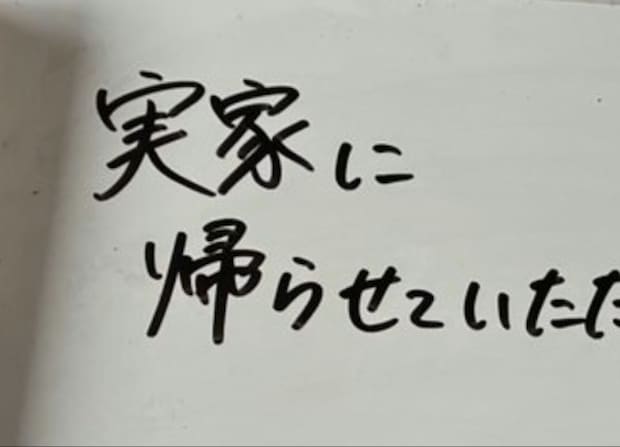 実家に
帰らせていただ